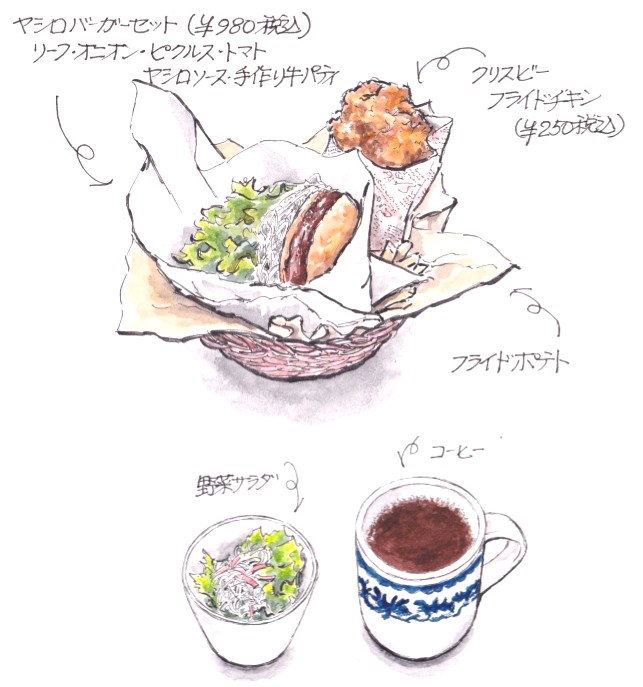 ヤシロバーガーセット (¥980税込)
リーフ・オニオン・ピクルス・トマト
ヤシロソース・手作り牛パティ
クリスピー
フライドチキン
(¥250税込)
フライドポテト
野菜サラダ
コーヒー